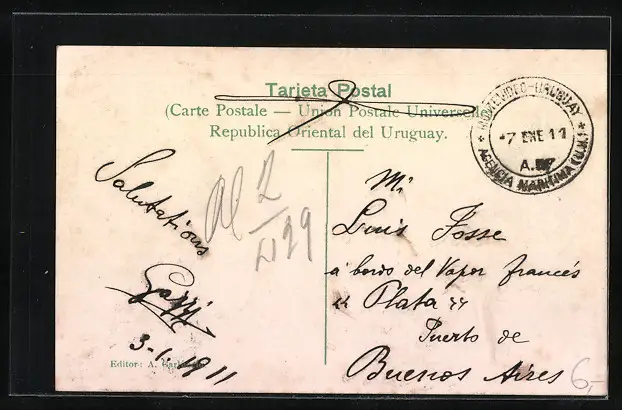 Tarjeta Postal
(Carte Postale — Union Postale Universelle
Republica Oriental del Uruguay.
MONTEVIDEO-URUGUAY
7 ENE 11
AGENCIA MARITIMA (U.K.)
Salutations
3-1-1911
Mr
Luis Fosse
à bordo del Vapor francés
" Plata "
Puerto de
Buenos Aires
Editor: A.
6,-